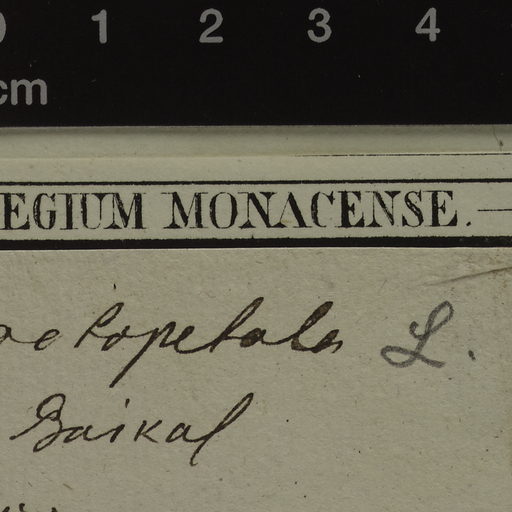 0 1 2 3 4
cm
EGIUM MONACENSE.
L.
Baikal